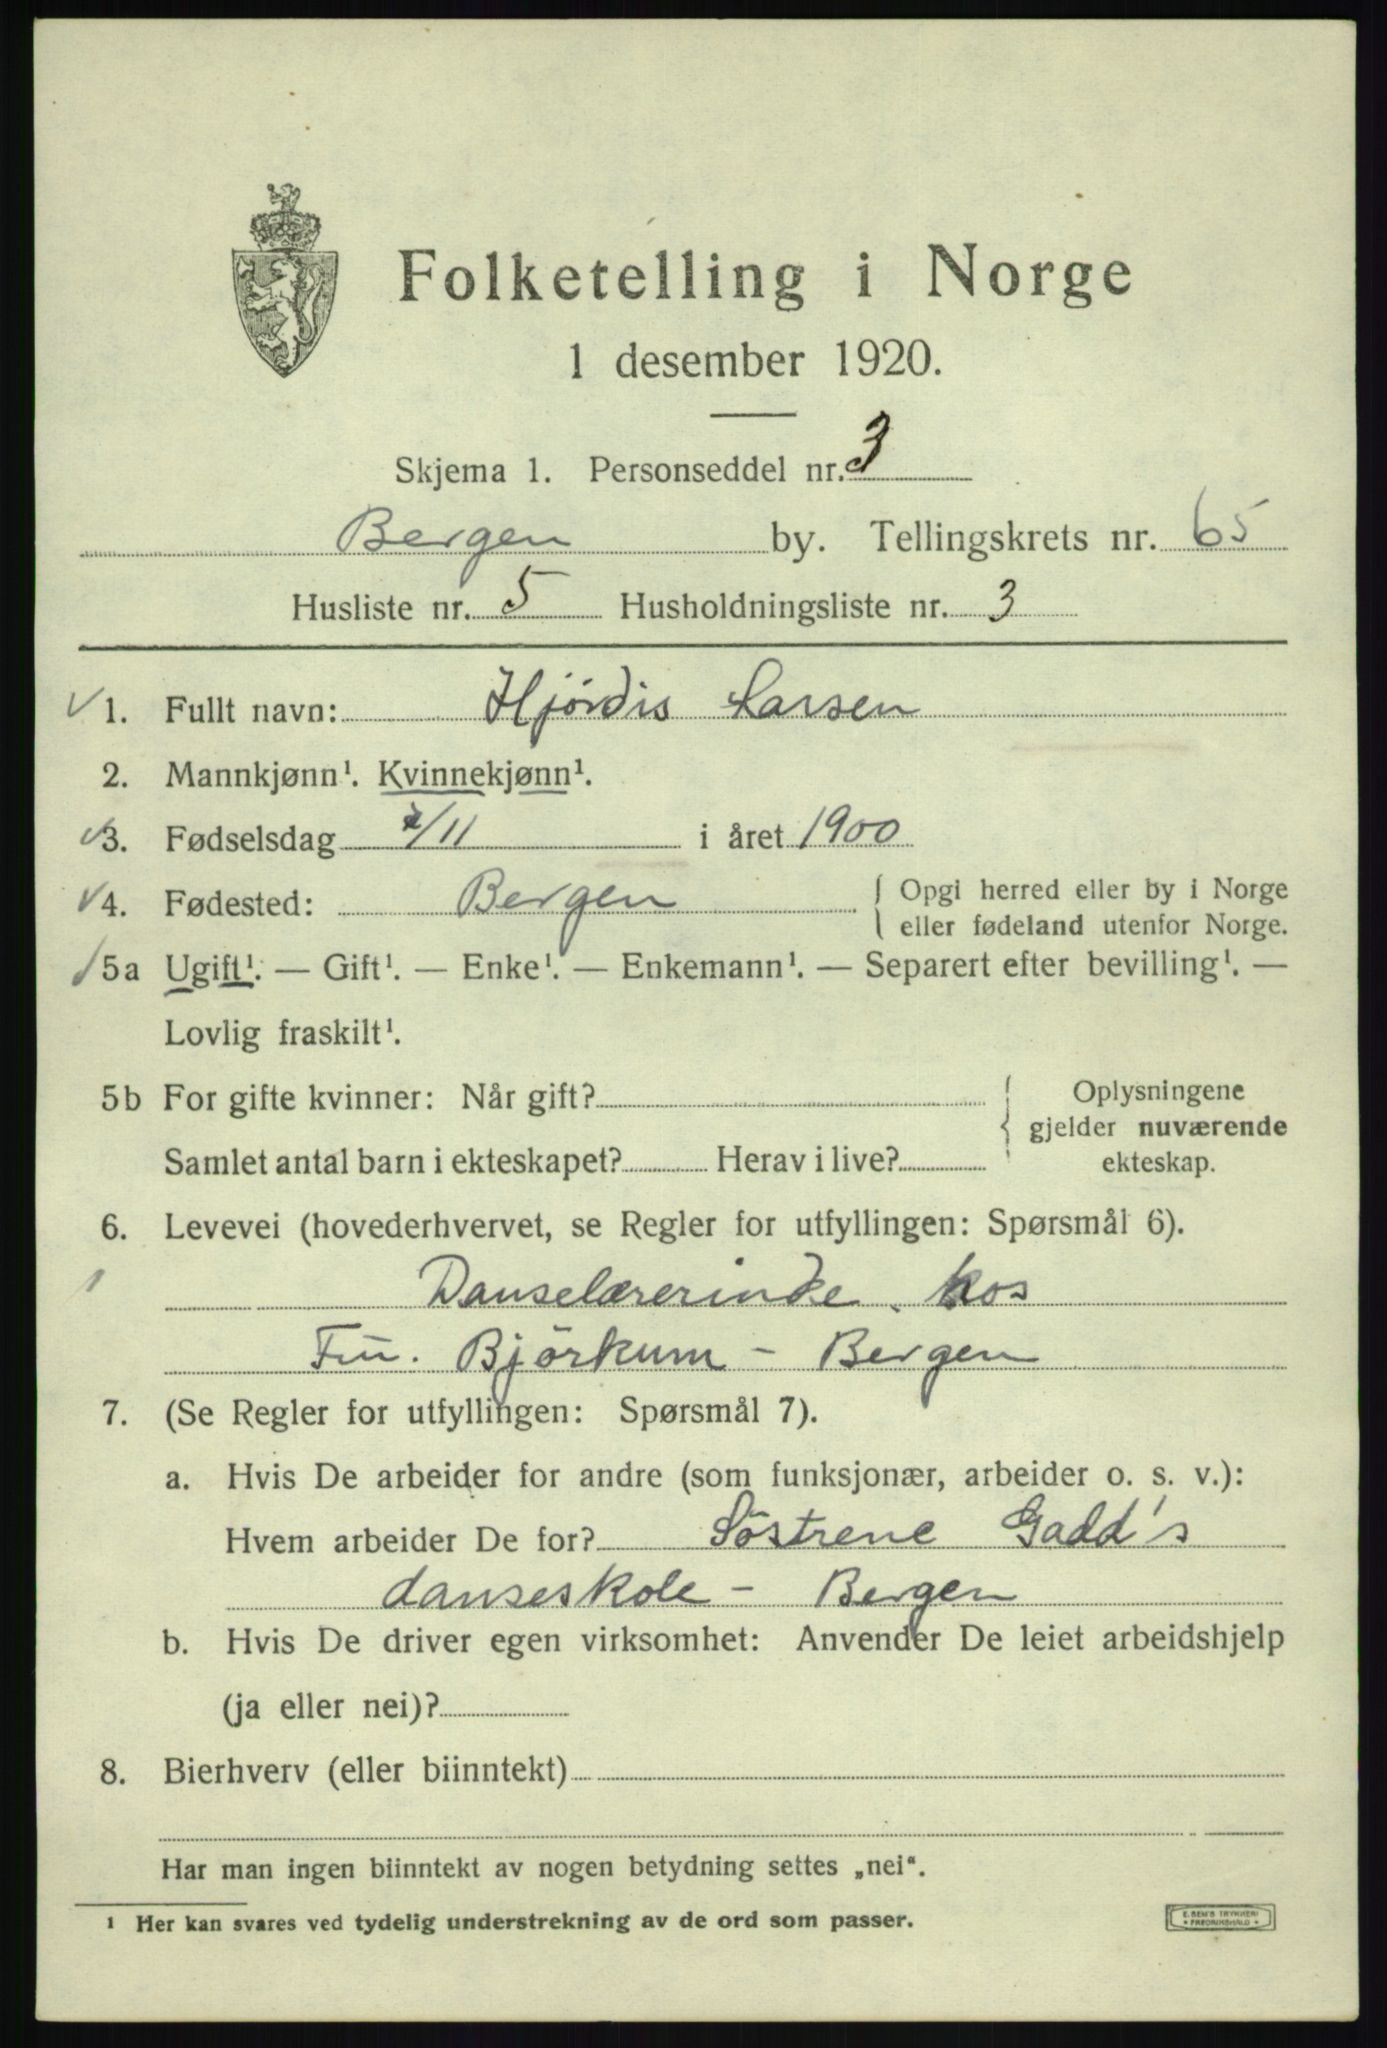 Folketelling i Norge
1 desember 1920.
Skjema 1. Personseddel nr. 3
Bergen by. Tellingskrets nr. 65
Husliste nr. 5 Husholdningsliste nr. 3
1. Fullt navn: Hjördis Larsen
2. Mannkjønn¹. Kvinnekjønn¹.
3. Fødselsdag /11 i året 1900
4. Fødested: Bergen { Opgi herred eller by i Norge
eller fødeland utenfor Norge.
5a Ugift¹. — Gift¹. — Enke¹. — Enkemann¹. — Separert efter bevilling¹. —
Lovlig fraskilt¹.
5b For gifte kvinner: Når gift? { Oplysningene
gjelder nuværende
Samlet antal barn i ekteskapet? Herav i live? ekteskap.
6. Levevei (hovederhvervet, se Regler for utfyllingen: Spørsmål 6).
Danselærerinde. hos
Björkum - Bergen
7. (Se Regler for utfyllingen: Spørsmål 7).
a. Hvis De arbeider for andre (som funksjonær, arbeider o. s. v.):
Hvem arbeider De for? Söstrene Gadd's
danseskole - Bergen
b. Hvis De driver egen virksomhet: Anvender De leiet arbeidshjelp
(ja eller nei)?
8. Bierhverv (eller biinntekt)
Har man ingen biinntekt av nogen betydning settes „nei“.
¹ Her kan svares ved tydelig understrekning av de ord som passer.
E. SEM'S TRYKKERI
FREDRIKSHALD